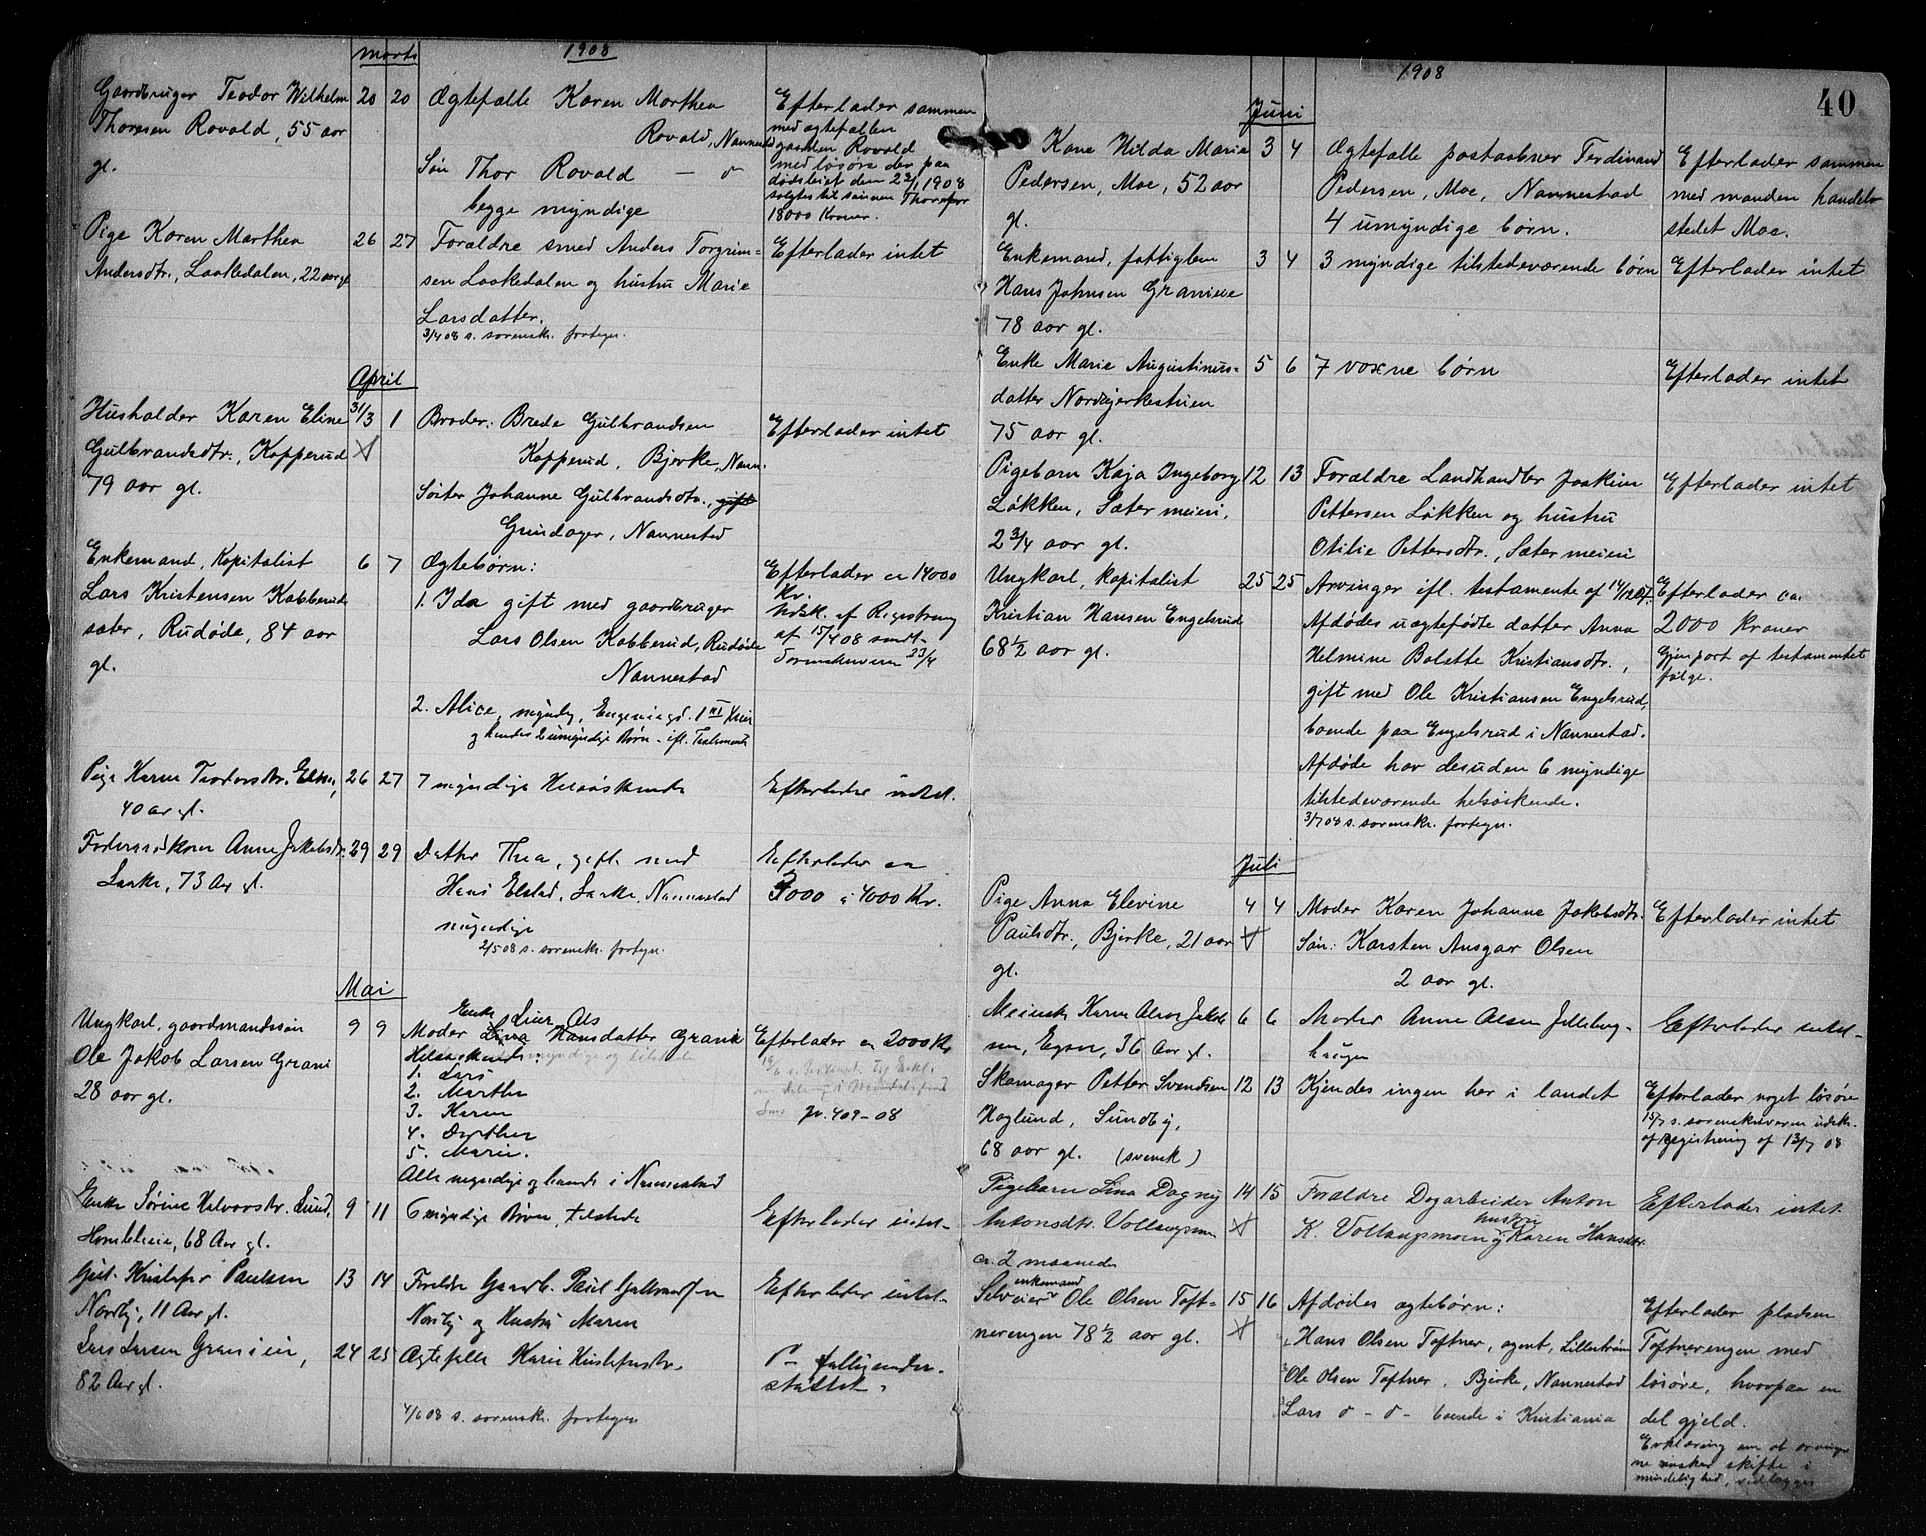 1908
Marts
Gaardbruger Teodor Wilhelm 20 20 Ægtefælle Karen Marthea Efterlader sammen
Thoresen Rovold, 55 aar Rovold, Nannestd med ægtefællen
gl. Søn Thor Rovold — " — gaarden Rovold
begge myndige med løsøre der paa
dødsleiet den 23/1 1908
solgtes til sønnen Thor for
18000 Kroner.
Pige Karen Marthea 26 27 Forældre smed Anders Torgrim- Efterlader intet
Andersdtr., Laakedalen, 22 aar gl sen Laakedalen og hustru Marie
Larsdatter.
3/4 08 s. sorenskr. fortegn.
April
Husholder Karen Eline 31/3 1 Broder. Brede Gulbrandsen Efterlader intet
Gulbrandsdtr., Kopperud Kopperud, Bjerke, Nann.
79 aar gl. Søster Johanne Gulbrandsdtr., gift
Grindager, Nannestad
Enkemand, Kapitalist 6 7 Ægtebørn: Efterlader ca 14000
Lars Kristensen Kabberud 1. Ida gift med gaardbruger Kr.
sæter, Rudøde, 84 aar Lars Olsen Kabberud, Rudøde Udsk. af Registrering
gl. Nannestad af 15/4 08 sendt
Sorenskriveren 23/4
2. Alice, myndig,
og hendes 2 umyndige Børn - ifl. Testamente
Pige Karen Teodorsdtr. 26 27 7 myndige Helsøskende Efterlader intet.
40 aar gl.
Anne Jakobsdtr. 29 29 Datter Thea, gift med Efterlader ca
Laake, 73 Aar gl. Hans Elstad, Laake, Nannestad 3000 à 4000 Kr.
myndige
2/5 08 s. sorenskr. fortegn.
Mai
Ungkarl, gaardmandssøn 9 9 Moder Enke Hansdatter Grani Efterlader ca 2000 Kr
Ole Jakob Larsen Grani Helsøskende:
28 aar gl. 1. Lars
2. Marthe
3. Karen
4. Dorthea
5. Marie.
Jv. 409-08
Alle myndige og boende i Nannestad
Enke Sørine Halvorsdtr. Lund, 9 11 6 myndige Børn, tilstede Efterlader intet
68 Aar gl.
Gut. Kristofer Paulsen 13 14 Forældre Gaardb. Paul Gulbrandsen Efterlader intet
Nordby, 11 Aar gl. Nordby og Hustru Maren
Lars Larsen Granieie, 24 25 Ægtefælle Marie Kristofersdtr.
82 Aar gl.
4/6 08 s. sorenskr. fortegn
1908
40
Juni
Kone Hilda Marie 3 4 Ægtefælle postaabner Ferdinand Efterlader sammen
Pedersen, Moe, 52 aar Pedersen, Moe, Nannestad med manden handels-
gl. 4 umyndige børn. stedet Moe.
Enkemand, fattiglem 3 4 3 myndige tilstedeværende børn Efterlader intet
Hans Johnsen Granieie
78 aar gl.
Enke Marie Augustinus- 5 6 7 voxne børn Efterlader intet
datter Nordbjerkestuen
75 aar gl.
Pigebarn Kaja Ingeborg 12 13 Forældre Landhandler Joakim Efterlader intet
Løkken, Sæter meieri, Pettersen Løkken og hustru
2 3/4 aar gl. Otilie Pettersdtr., Sæter meieri
Ungkarl, kapitalist 25 25 Arvinger ifl. testamente af Efterlader ca.
Kristian Hansen Engelsrud Afdødes uægtefødte datter Anna 2000 kroner
68 1/2 aar gl. Helmine Bolette Kristiansdtr., Gjenpart af testamentet
gift med Ole Kristiansen Engelsrud, følge.
boende paa Engelsrud i Nannestad.
Afdøde har desuden 6 myndige
tilstedeværende helsøskende.
3/7 08 s. sorenskr. fortegn.
Juli
Pige Anna Elevine 4 4 Moder Karen Johanne Jakobsdtr. Efterlader intet
Paulsdtr., Bjerke, 21 aar Søn: Karsten Ansgar Olsen
gl. 2 aar gl.
6 6 Moder Anne Olsen Efterlader intet
36 Aar gl. haugen
Skomager Petter Svendsen 12 13 Kjendes ingen her i landet Efterlader noget løsøre
Hoglund, Sundby, 15/7 s. sorenskriveren udskr.
68 aar gl. (svensk) af registrering af 13/7 08
Pigebarn Lina Dagny 14 15 Forældre Dagarbeider Anton Efterlader intet
Antonsdtr. Vollaugsmoen K. Vollaugsmoen og hustru Karen Hansdtr.
ca. 2 maaneder
Selveier enkemand Ole Olsen Toft- 15 16 Afdødes ægtebørn: Efterlader pladsen
nerengen 78 1/2 aar gl. 1. Hans Olsen Toftner, agent, Lillestrøm Toftnerengen med
2 Ole Olsen Toftner, Bjerke, Nannestad løsøre, hvorpaa en
3 Lars " - " - boende i Kristiania del gjeld.
Erklæring om at arvinger
ne ønsker skifte i
mindelighed, vedlægges